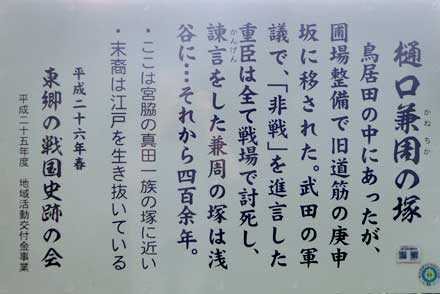 樋口兼周の塚
かねちか
鳥居田の中にあったが、
圃場整備で旧道筋の庚申
坂に移された。武田の軍
議で、「非戦」を進言した
重臣は全て戦場で討死し、
かんげん
諫言をした兼周の塚は浅
谷に…それから四百余年。
・ここは宮脇の真田一族の塚に近い
・末裔は江戸を生き抜いている
平成二十六年春
東郷の戦国史跡の会
平成二十五年度 地域活動交付金事業